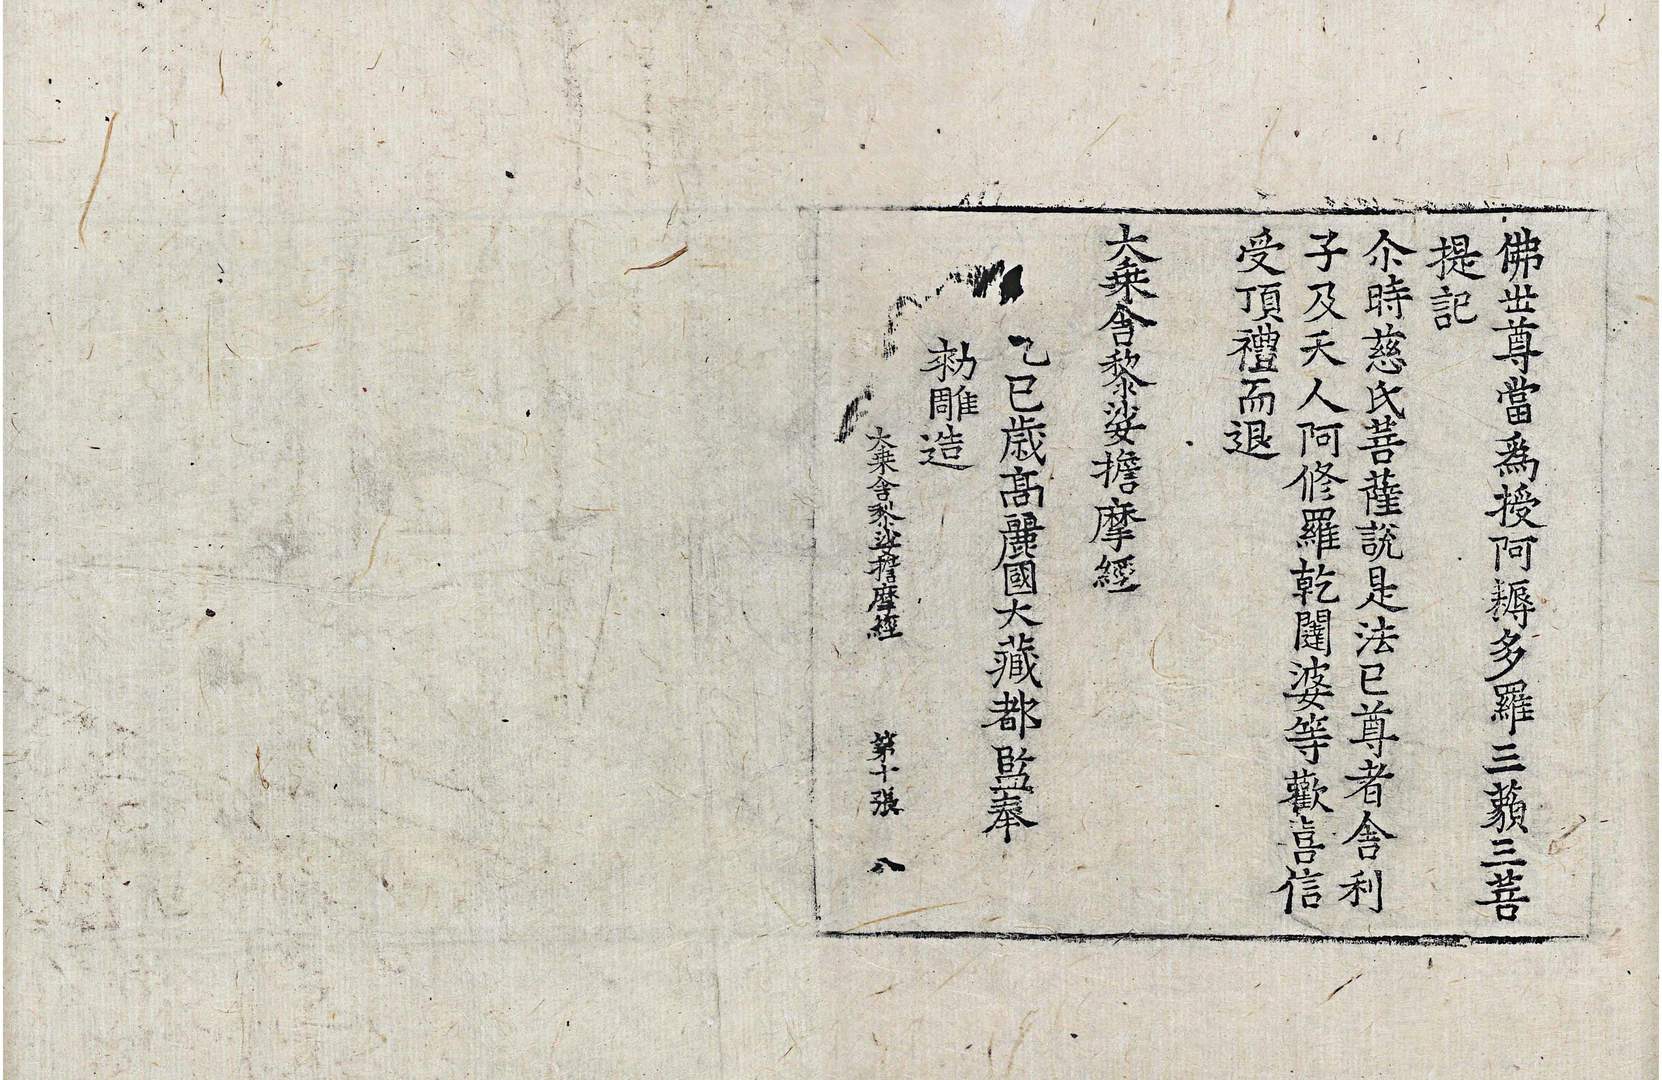 佛世尊當爲授阿耨多羅三藐三菩
提記
尒時慈氏菩薩說是法已尊者舍利
子及天人阿修羅乾闥婆等歡喜信
受頂禮而退
大乗舍黎娑擔摩經
乙巳歲高麗國大藏都監奉
勑雕造
大乗舍黎娑擔摩經 第十張 八